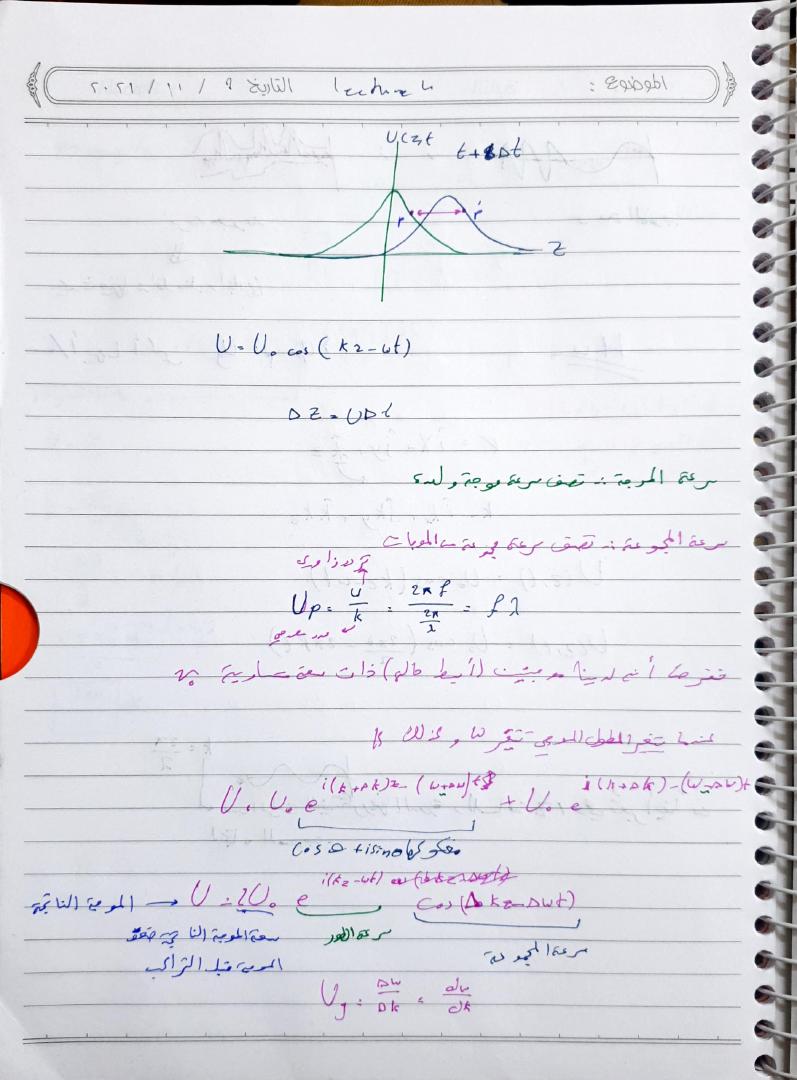 الموضوع : lecture 4 التاريخ ٩ / ١٠ / ٢٠٢١
U(z,t t+Δt
P Ṕ
Z
U = U₀ cos (kz-ωt)
Δz = UΔt
سرعة الموجة :- تصف سرعة موجة واحدة
سرعة المجموعة :- تصف سرعة مجموعة من الموجات
تردد زاوري
Up = ω/k = 2πf / (2π/λ) = fλ
عدد موجي
نفرض أن لدينا موجتين (أبسط حالة) ذات سعة متساوية
عندما يتغير الطول الموجي تتغير ω وكذلك k
U = U₀ e^i(k+Δk)z-(ω+Δω)t + U₀ e^i(k+Δk)-(ω-Δω)t
مفكوكها cos θ + i sin θ
الموجة الناتجة ← U = 2U₀ e^i(kz-ωt) cos(Δkz-Δωt)
سعة الموجة الناتجة ضعف سرعة الطور سرعة المجموعة
الموجة قبل التراكب
Ug = Δω/Δk = dω/dk